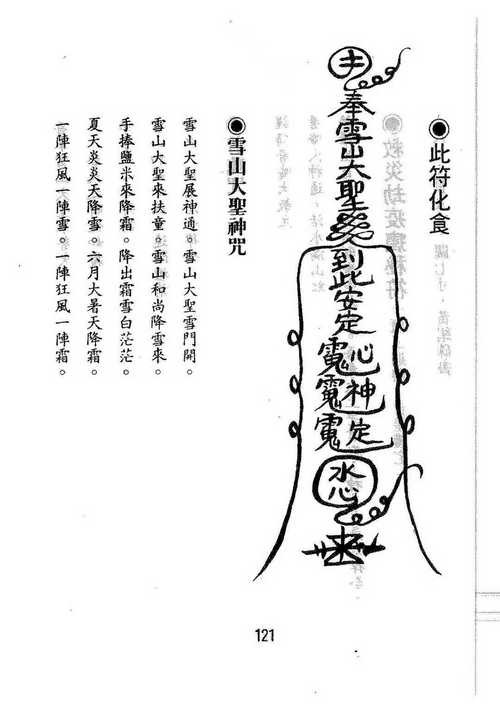 ◉此符化食
奉雪山大聖
到此安定
心神定
◉雪山大聖神咒
雪山大聖展神通。雪山大聖雪門開。
雪山大聖來扶童。雪山和尚降雪來。
手捧鹽米來降霜。降出霜雪白茫茫。
夏天炎炎天降雪。六月大暑天降霜。
一陣狂風一陣雪。一陣狂風一陣霜。
121